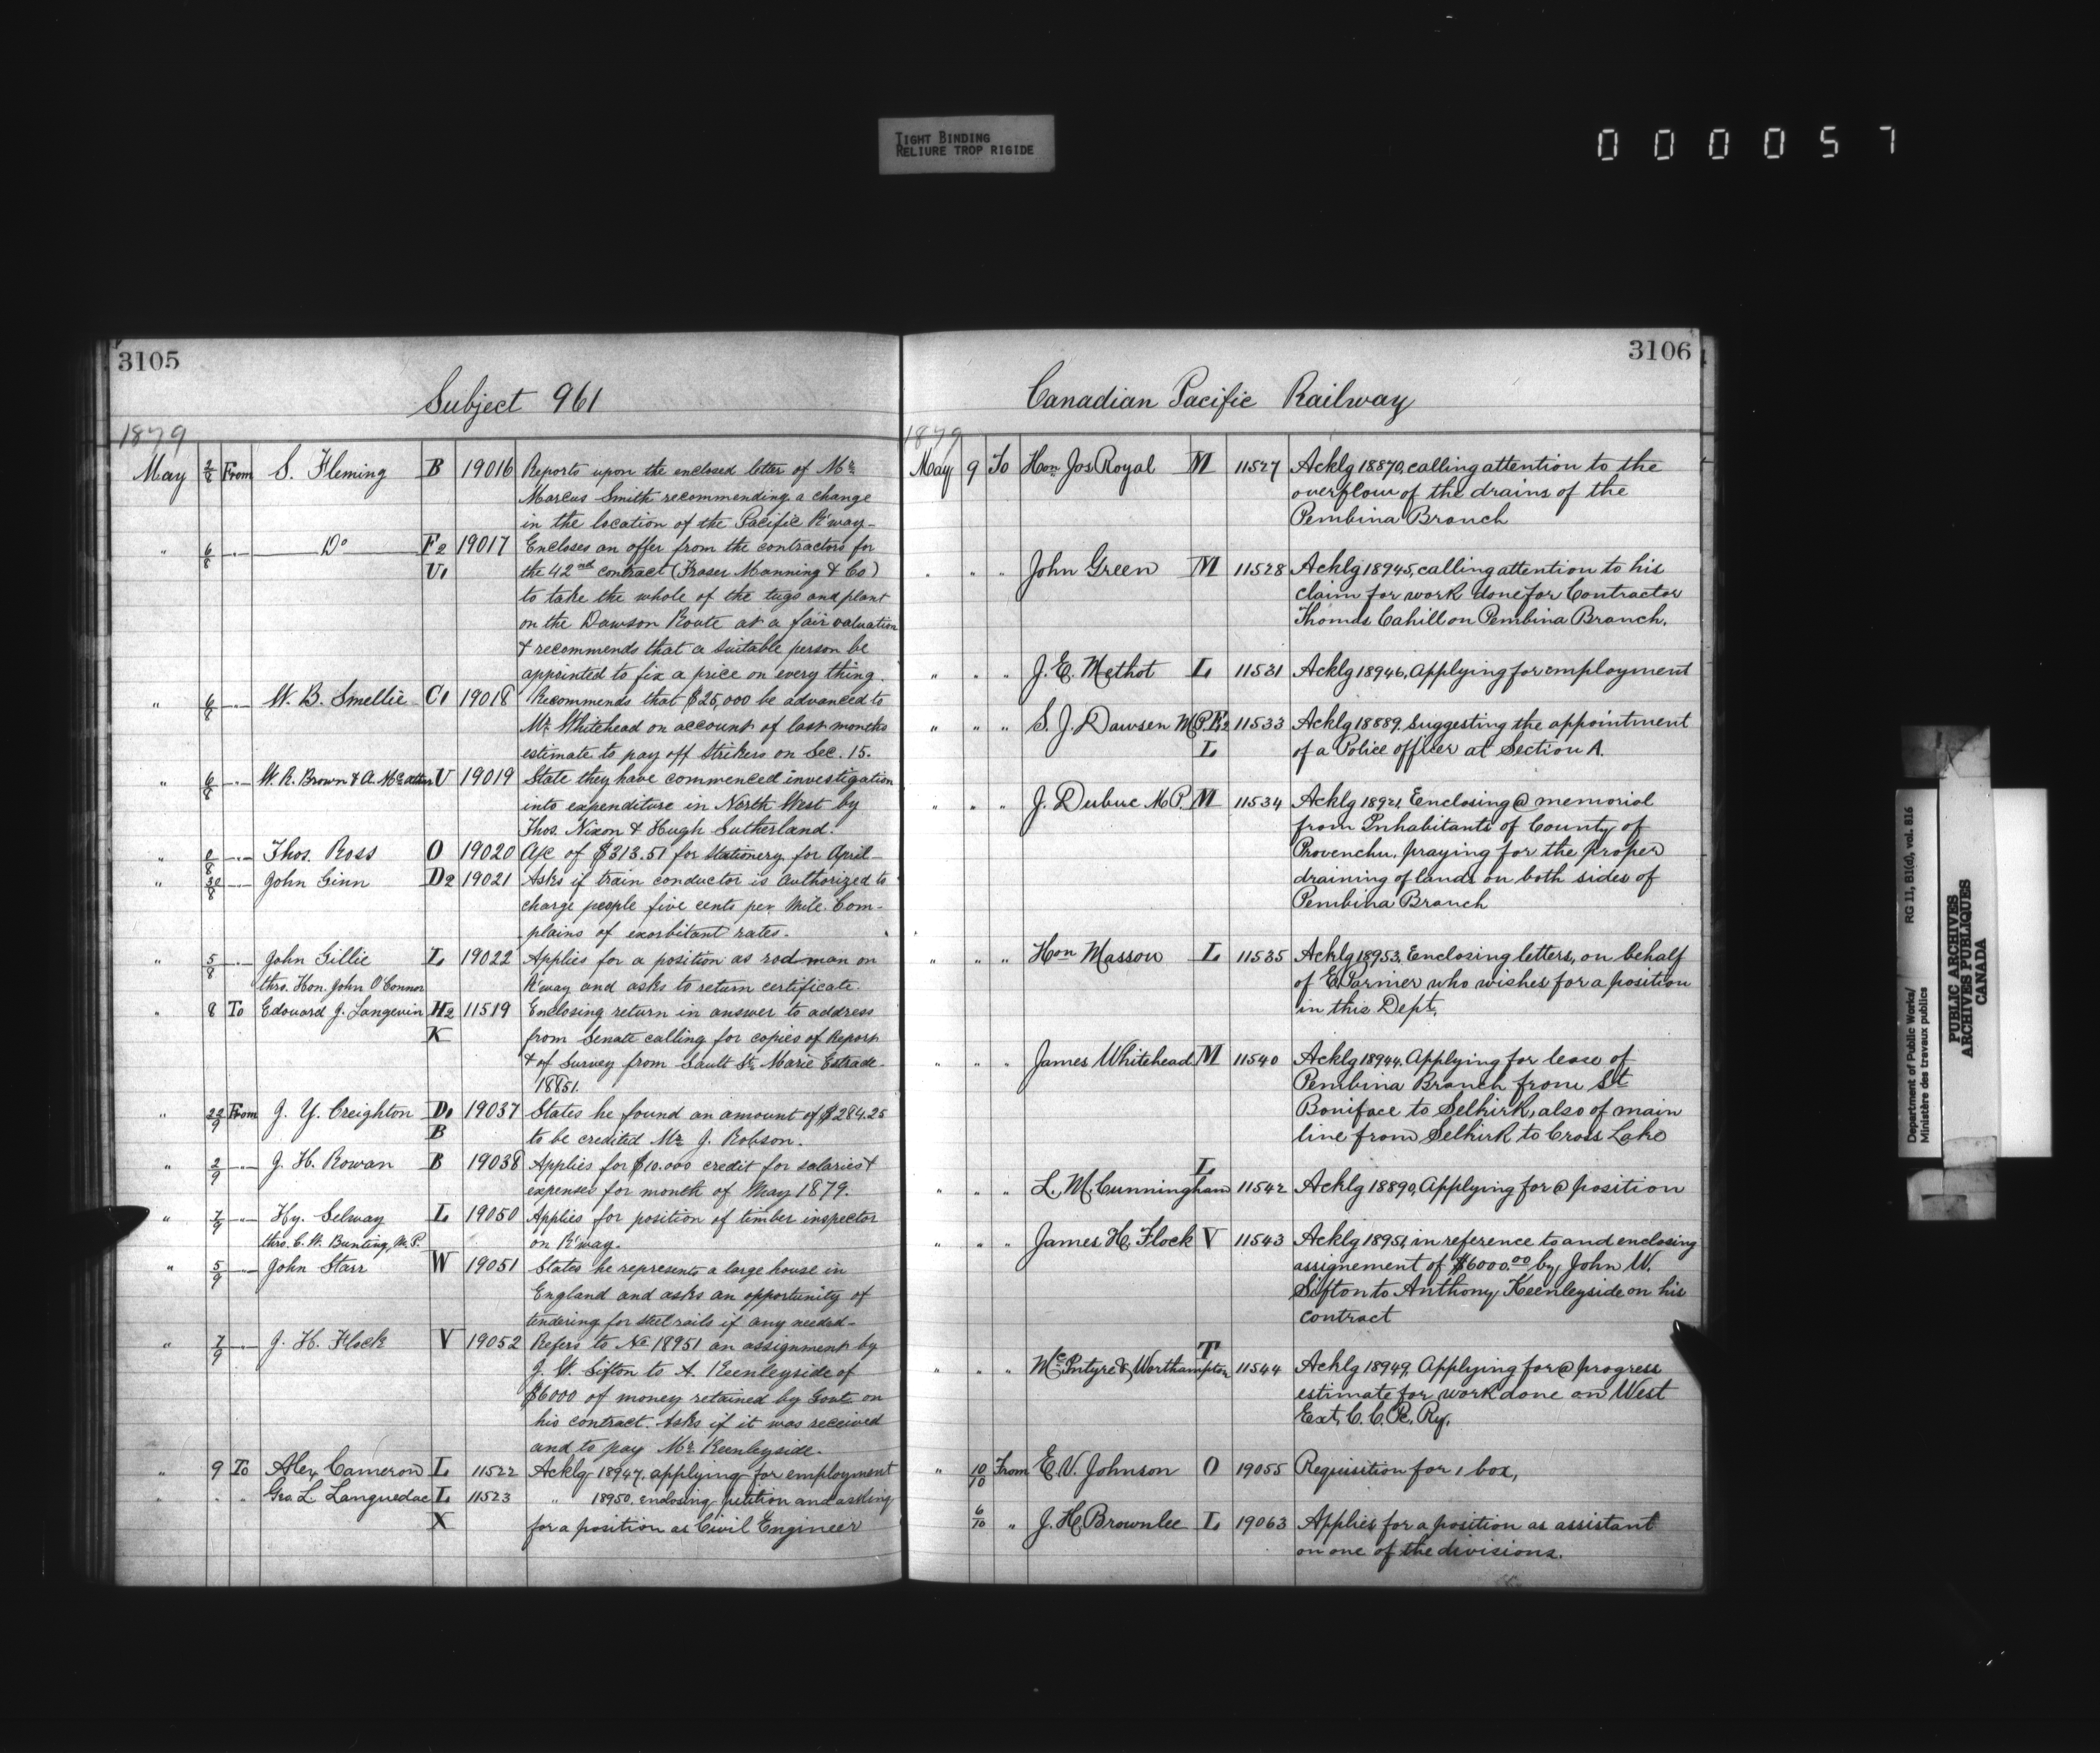 TIGHT BINDING
RELIURE TROP RIGIDE
000057
3105
Subject 961
1879
May 2/8 From S. Fleming B 19016 Reports upon the enclosed letter of Mr
Marcus Smith recommending a change
in the location of the Pacific R'way-
" 6/8 " Do F2 19017 Encloses an offer from the contractors for
U1 the 42nd contract (Fraser Manning & Co)
to take the whole of the tugs and plant
on the Dawson Route at a fair valuation
& recommends that a suitable person be
appointed to fix a price on every thing.
" 6/8 " W. B. Smellie C1 19018 Recommends that $25,000 be advanced to
Mr. Whitehead on account of last months
estimate to pay off strikers on Sec. 15.
" 6/8 " W. R. Brown & A. U 19019 State they have commenced investigation
into expenditure in North West by
Thos. Nixon & Hugh Sutherland.
" /8 " Thos. Ross O 19020 A/c of $313.51 for Stationery for April-
" 30/8 " John Ginn D2 19021 Asks if train conductor is authorized to
charge people five cents per mile. Com-
plains of exorbitant rates.
" 5/8 " John Gillie L 19022 Applies for a position as rodman on
thro. Hon. John O'Connor R'way and asks to return certificate.
" 8 To Edouard J. Langevin H2 11519 Enclosing return in answer to address
K from Senate calling for copies of Report
& of Survey from Sault Ste Marie
" 22/9 From J. Y. Creighton D1 19037 States he found an amount of $284.25
B to be credited Mr J. Robson.
" 2/9 " J. H. Rowan B 19038 Applies for $10.000 credit for salaries &
expenses for month of May 1879.
" 7/9 " Hy. Selway L 19050 Applies for position of timber inspector
thro. C. W. Bunting, M.P. on R'way.
" 5/9 " John Starr W 19051 States he represents a large house in
England and asks an opportunity of
tendering for steel rails if any needed-
" 7/9 " J. H. Flock V 19052 Refers to No 18951 an assignment by
J. W. Sifton to A. Keenleyside of
$6000 of money retained by Govt on
his contract. Asks if it was received
and to pay Mr. Keenleyside.
" 9 To Alex Cameron L 11522 Acklg 18947. applying for employment
" " " Geo. L. Languedoc L 11523 " 18950. enclosing petition and asking
X for a position as Civil Engineer
3106
Canadian Pacific Railway
1879
May 9 To Hon. Jos Royal M 11527 Acklg 18870, calling attention to the
overflow of the drains of the
Pembina Branch
" " " John Green M 11528 Acklg 18945, calling attention to his
claim for work done for Contractor
Thomas Cahill on Pembina Branch.
" " " J. E. Methot L 11531 Acklg 18946, Applying for employment
" " " S. J. Dawsen M.P. E2 11533 Acklg 18889, Suggesting the appointment
L of a Police officer at Section A.
" " " J. Dubuc M.P. M 11534 Acklg 18921, Eenclosing @ memorial
from Inhabitants of County of
Provencher, praying for the proper
draining of lands on both sides of
Pembina Branch
" " " Hon Masson L 11535 Acklg 18953, Enclosing letters, on behalf
of E. Parmer who wishes for a position
in this Dept.
" " " James Whitehead M 11540 Acklg 18944, Applying for lease of
Pembina Branch from St
Boniface to Selkirk, also of main
line from Selkirk to Cross Lake
L
" " " L. M. Cunningham 11542 Acklg 18890, Applying for @ position
" " " James H. Flock V 11543 Acklg 18951, in reference to and enclosing
assignement of $6000.00 by John W.
Sifton to Anthony Keenleyside on his
contract
T
" " " McIntyre & Worthampton 11544 Acklg 18949, Applying for @ progress
estimate for work done on West
Ext. C. C. R. Ry.
" 10/10 From E. V. Johnson O 19055 Requisition for 1 box,
6/10 " J. H. Brownlee L 19063 Applies for a position as assistant
on one of the divisions.
Department of Public Works/
Ministère des travaux publics
RG 11, B1(d), vol. 816
PUBLIC ARCHIVES
ARCHIVES PUBLIQUES
CANADA